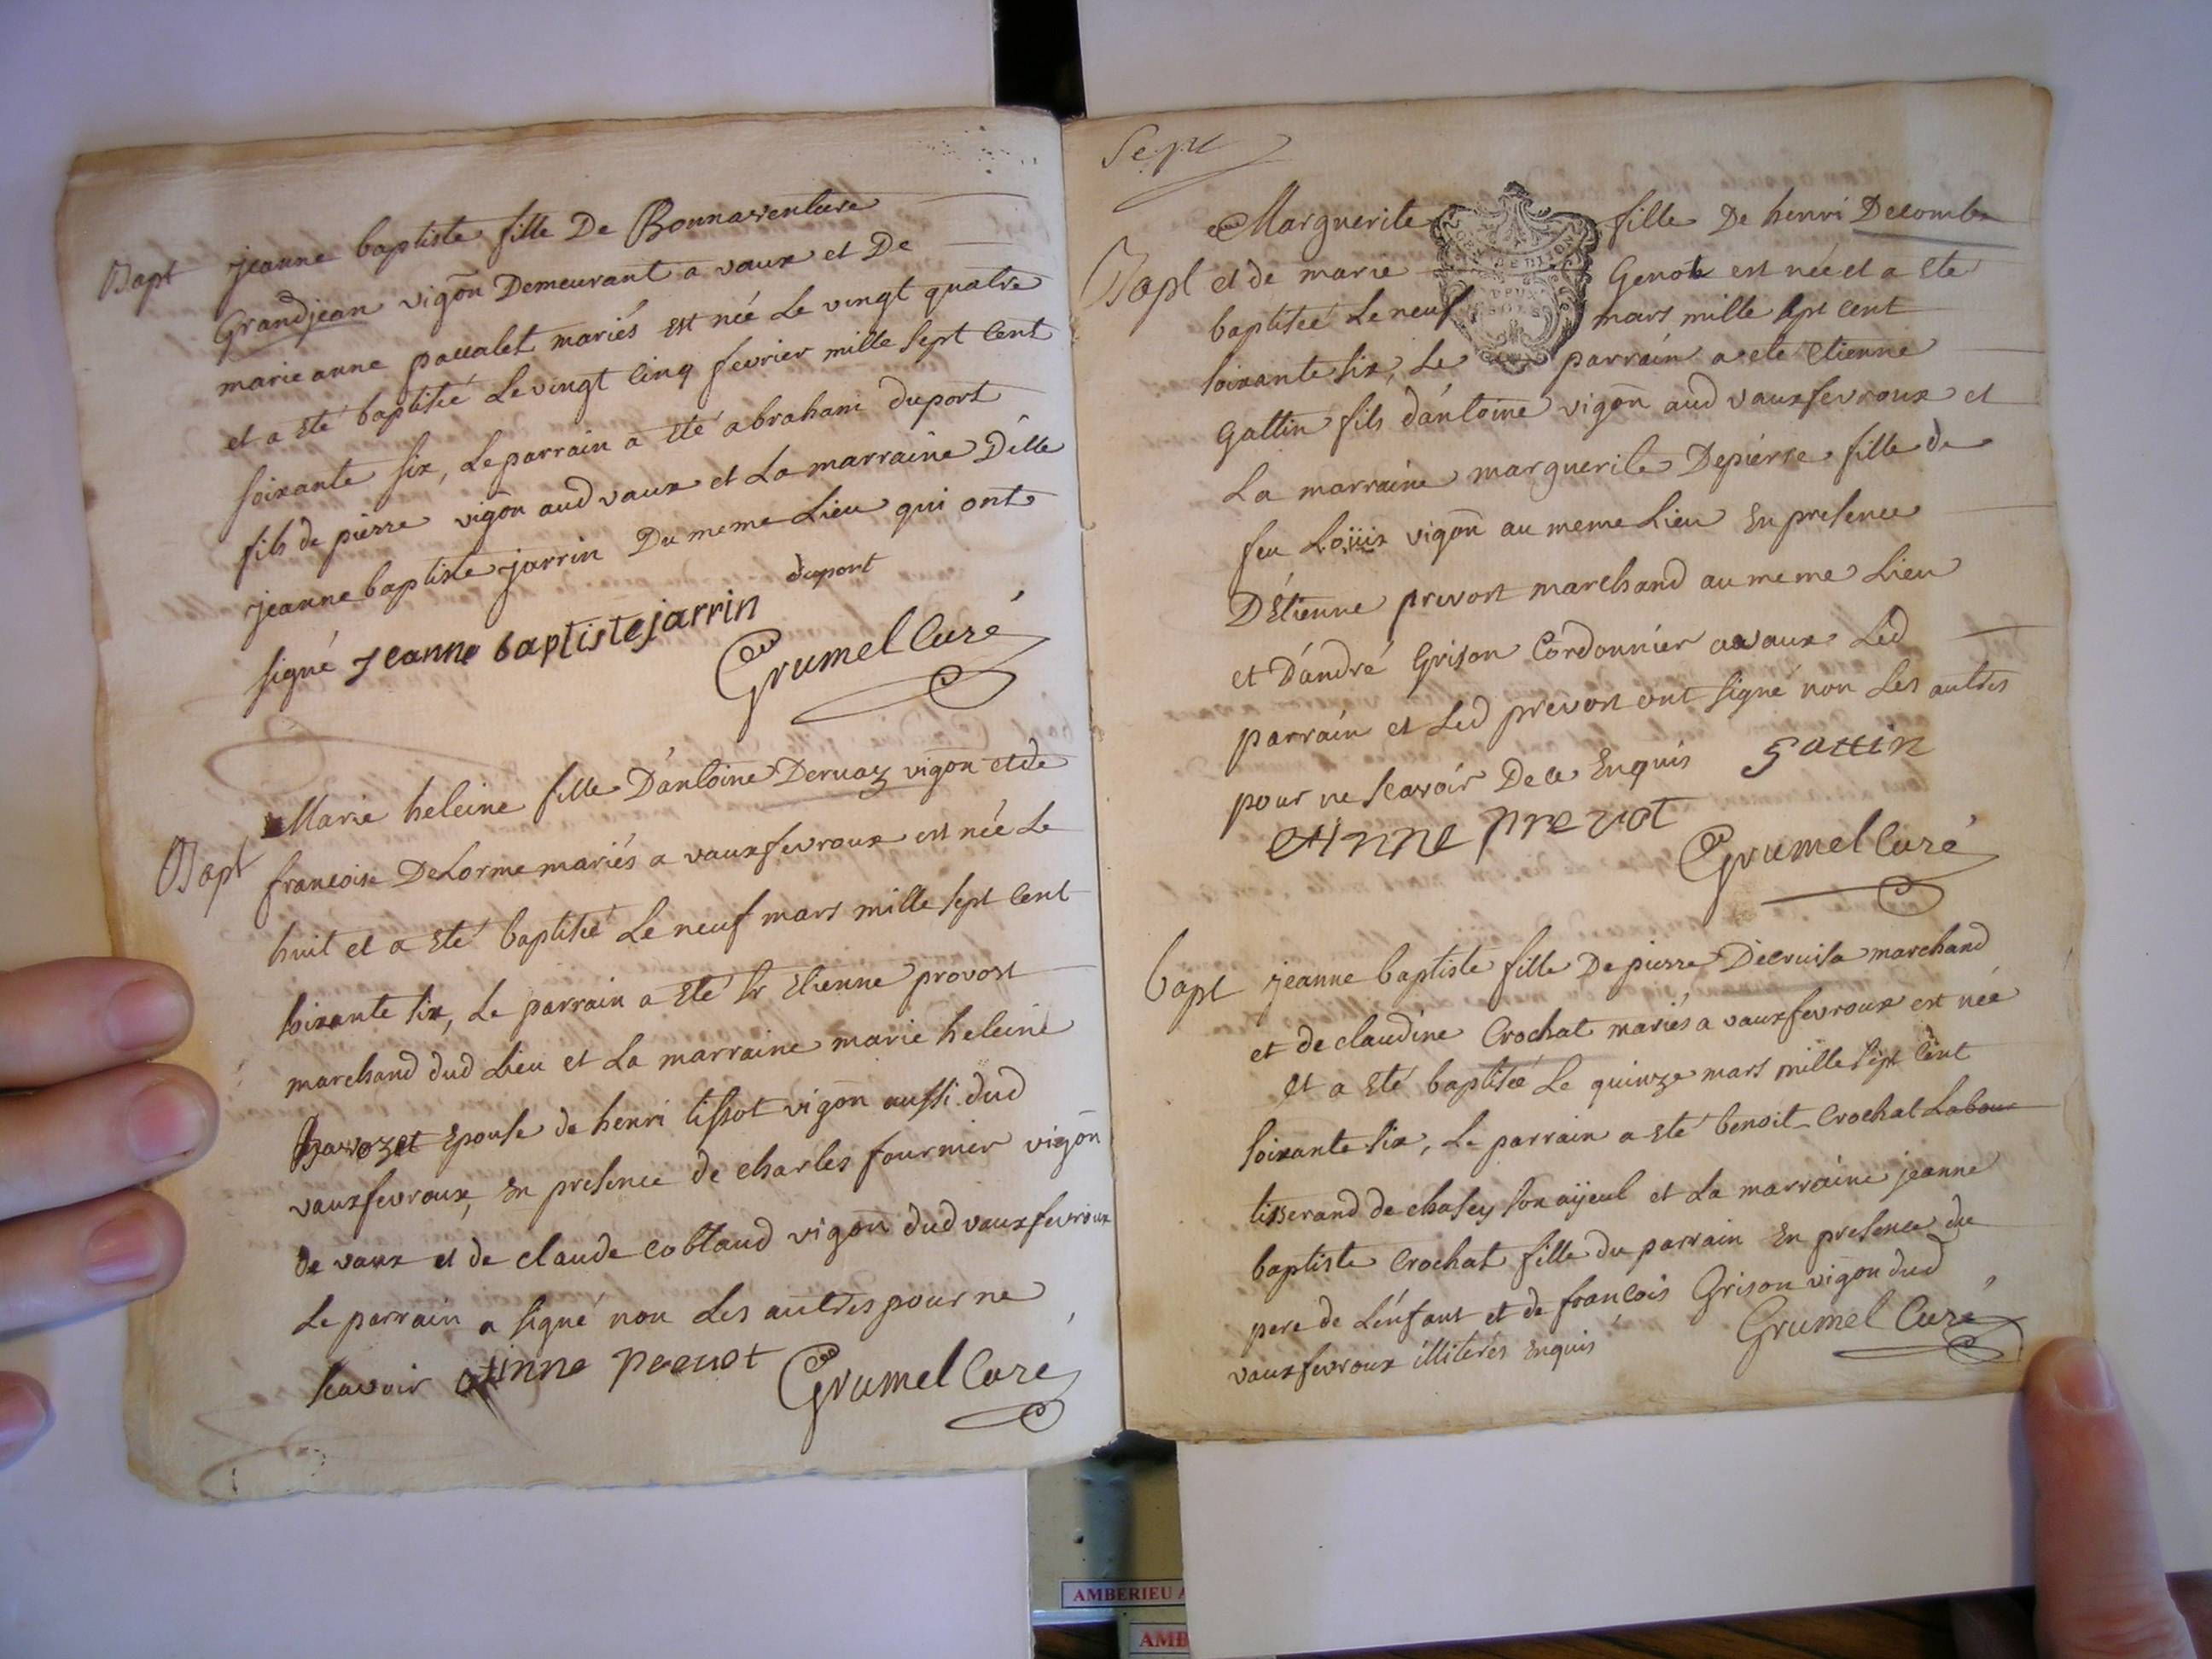 Bapt
jeanne baptiste fille De Bonnaventure
Grandjean vigõn Demeurant a vaux et De
marie anne paccalet mariés est née Le vingt quatre
et a eté baptisée Le vingt cinq fevrier mille sept cent
soixante six, Le parrain a eté abraham duport
fils de pierre vigõn aud vaux et La marraine Dĺle
jeanne baptiste jarrin Du meme Lieu qui ont
signé jeanne baptiste jarrin duport
Grumel Curé
Bapt
Marie heleine fille D'antoine Dervaz vigõn et de
francoise DeLorme mariés a vauxfevroux est née Le
huit et a eté baptisée Le neuf mars mille sept cent
soixante six, Le parrain a eté Sr Etienne provost
marchand dud Lieu et La marraine marie heleine
epouse de henri tissot vigõn aussi dud
vauxfevroux, en presence de charles fournier vigõn
de vaux et de claude cottaud vigõn dud vauxfevroux
Le parrain a signé non Les autres pour ne
scavoir etinne prevot Grumel Curé
Sept
Marguerite fille De henri Decombe
Bapt et de marie Genot est née et a ete
baptisée Le neuf mars mille sept cent
soixante six, Le parrain a eté etienne
Gattin fils d'antoine vigõn aud vauxfevroux et
La marraine marguerite Depierre fille de
feu Loüis vigõn au meme Lieu en presence
D'Etienne prevost marchand au meme Lieu
et D'andré Grison Cordonnier a vaux Led
parrain et Led prevost ont signé non Les autres
pour ne scavoir De ce enquis gattin
etinne prevot
Grumel Curé
bapt jeanne baptiste fille De pierre Decruisa marchand
et de claudine Crochat mariés a vauxfevroux est née
et a eté baptisée Le quinze mars mille sept cent
soixante six, Le parrain a eté benoit Crochat Labour
tisserand de chasey son ayeul et La marraine jeanne
baptiste Crochat fille du parrain en presence du
pere de L'enfant et de francois Grison vigõn dud
vauxfevroux illiterés enquis Grumel Curé
AMBERIEU
AMB